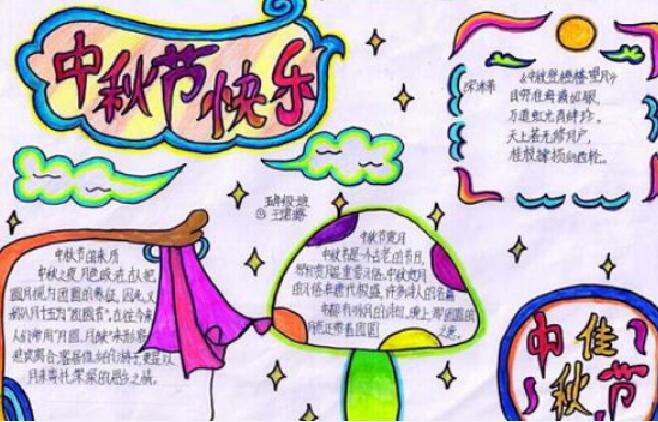 中秋节快乐
宋 米芾
《中秋登楼望月》
目穷淮海满如银，
万道虹光育蚌珍。
天上若无修月户，
桂枝撑损向西轮。
五年级
中秋节的来历
中秋之夜，月色皎洁，古人把
圆月视为团圆的象征，因此，又
称八月十五为“团圆节”。古往今来，
人们常用“月圆、月缺”来形容
“悲欢离合”，客居他乡的游子，更是以
月来寄托深深的思乡之情。
中秋节赏月
中秋节是一个古老的节日，
祭月赏月是重要习俗。中秋赏月
的习俗在唐代极盛，许多诗人的名篇
中都有咏月的诗句，
中秋佳节